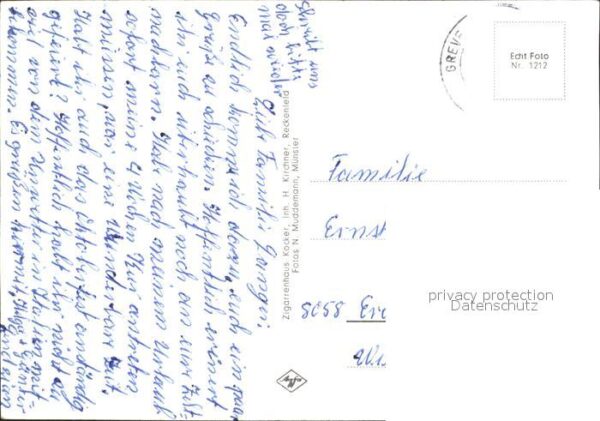 Schreibt uns
doch bitte
mal wieder
Liebe Familie
Endlich komme ich dazu, euch ein paar
Grüße zu schicken. Hoffentlich erinnert
ihr euch überhaupt noch an eure Zelt-
nachbarn. Hab nach meinem Urlaub
sofort meine 4 Wochen Kur antreten
müssen, war eine wunderbare Zeit.
Habt ihr auch das Oktoberfest anständig
gefeiert? Hoffentlich habt ihr nicht all
zu viel von dem Unwetter in Italien mit-
bekommen. Es grüßen
Zigarrenhaus Kocker, Inh. H. Kirchner, Reckenfeld
Fotos N. Muddemann, Münster
GREVE
Echt Foto
Nr. 1212
Familie
Ernst
8058
privacy protection
Datenschutz